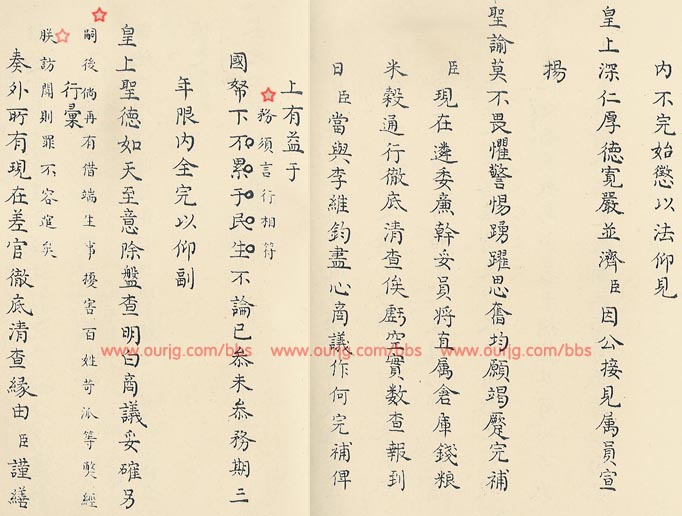 内不完始懲以法仰見
皇上深仁厚德寬嚴並濟臣因公接見属員宣
揚
聖諭莫不畏懼警惕踴躍思奮均願竭蹷完補
臣現在遴委廉幹妥員將直属倉庫錢粮
米穀通行徹底清查俟虧空實數查報到
日臣當與李維鈞盡心商議作何完補俾
上有益于
務須言行相符
國帑下不累于民生不論已叅未叅務期三
年限內全完以仰副
皇上聖德如天至意除盤查明白商議妥確另
嗣後倘再有借端生事擾害百姓苛派等獘經
行彙
朕訪聞則罪不容逭矣
奏外所有現在差官徹底清查縁由臣謹繕
www.ourjg.com/bbs www.ourjg.com/bbs www.ourjg.com/bbs